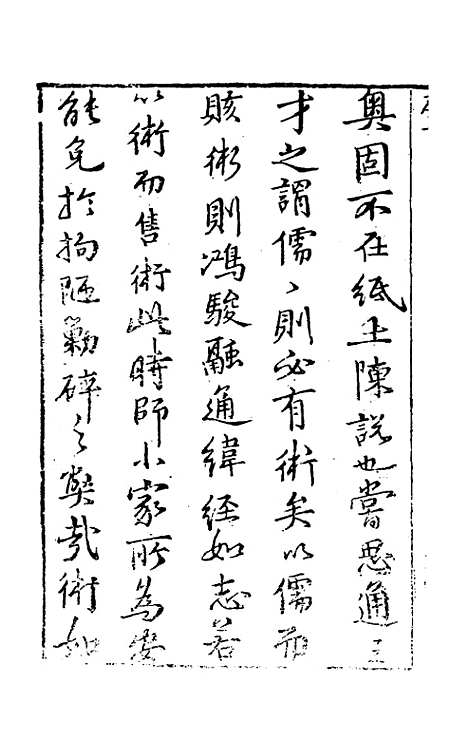 奥固不在纸上陳説也嘗思通三
才之謂儒〻則必有術矣以儒而
賅術則鴻駿融通緯經如志若
以術而售術此時師小家所為安
能免於拘陋勦碎之弊哉術如